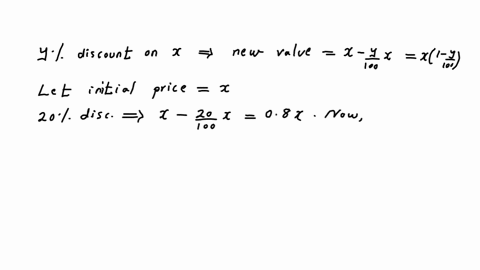 y.% discount on x ⇒ new value = x - y/100 x = x(1 - y/100)
Let initial price = x
20% disc. ⇒ x - 20/100 x = 0.8x. Now,